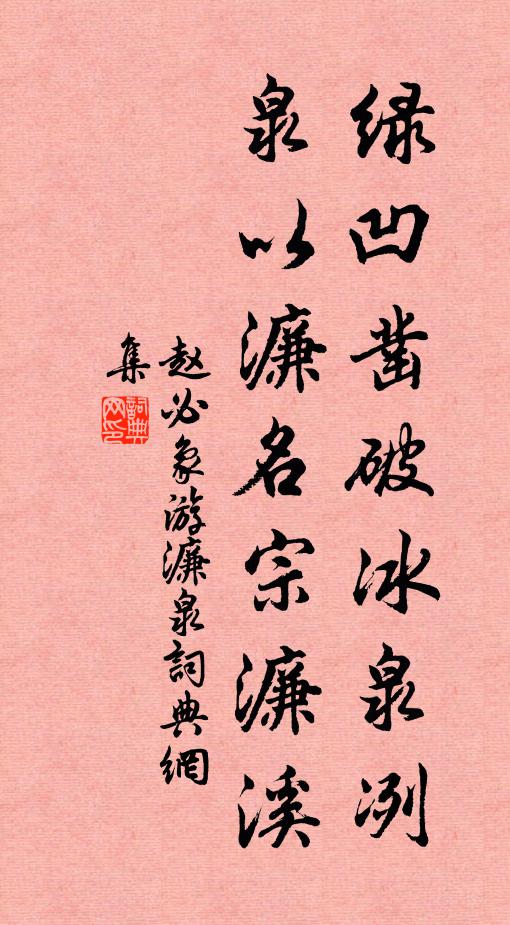 绿凹凿破冰泉冽
泉以濂名宗濂溪
赵必象游濂泉詞典網
集
詞典
网印